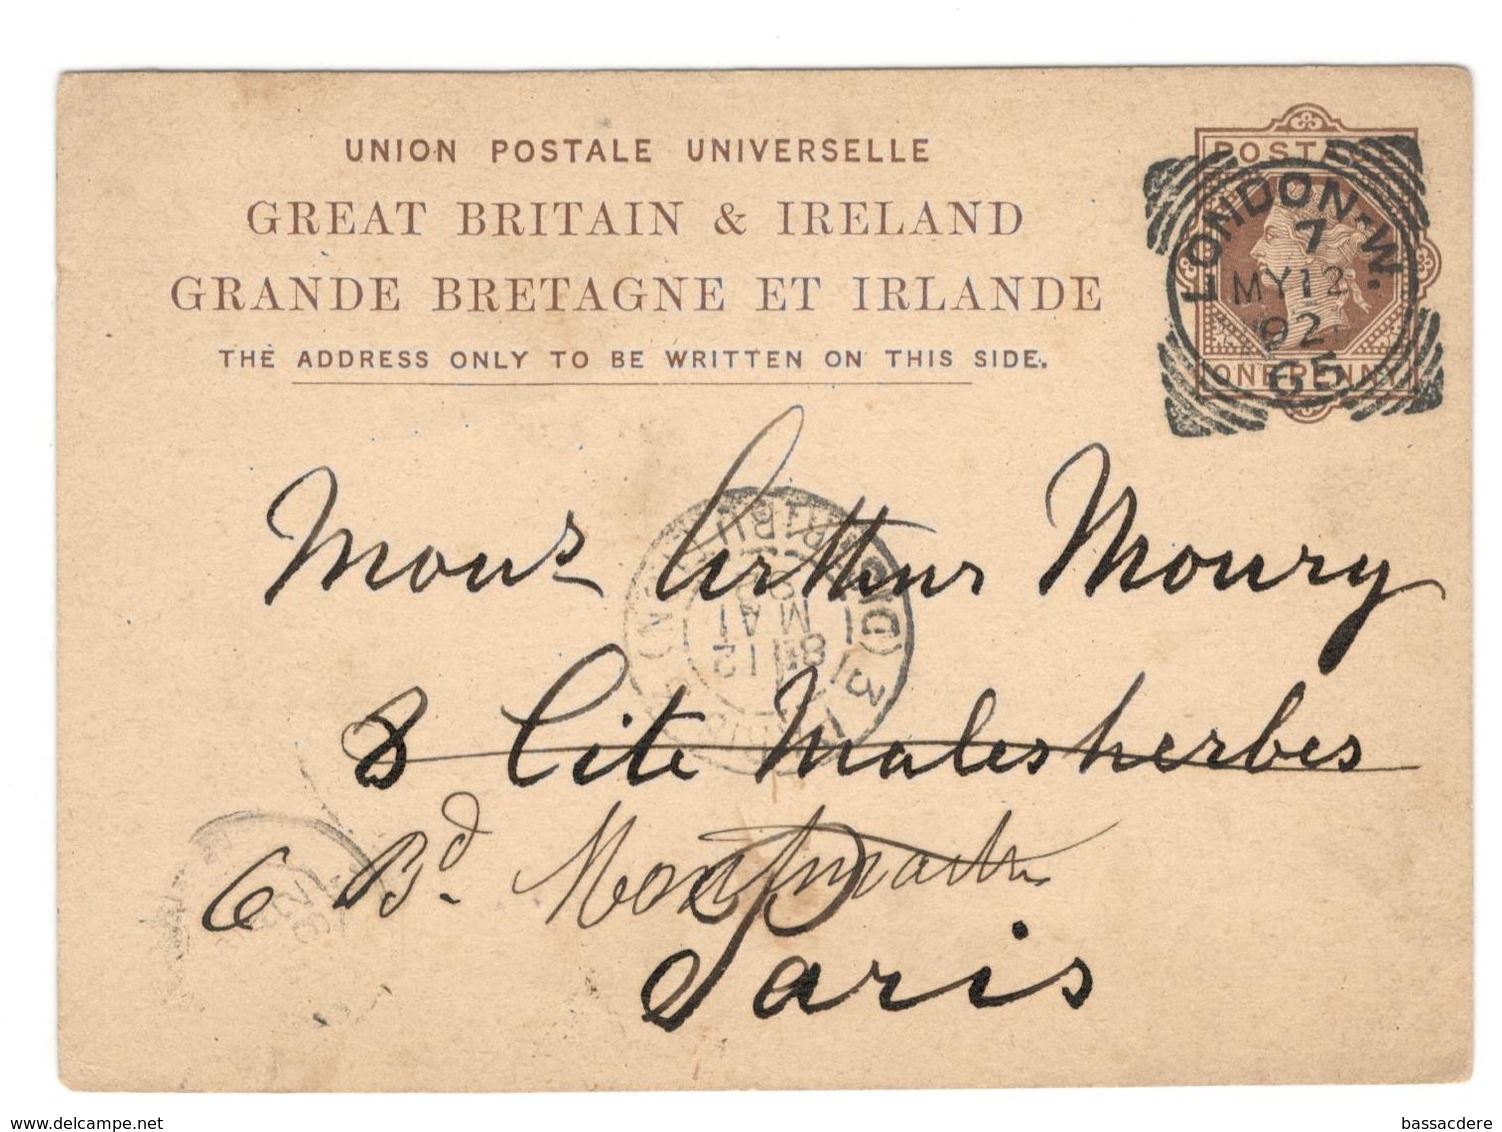 UNION POSTALE UNIVERSELLE
GREAT BRITAIN & IRELAND
GRANDE BRETAGNE ET IRLANDE
THE ADDRESS ONLY TO BE WRITTEN ON THIS SIDE.
POSTA
ONE PENNY
LONDON-W.
7
MY 12
92
65
Monsr Arthur Moury
8 Cite Malesherbes
6 Bd. Montmartre
Paris
3
8E 12
MAI
delcampe.net
bassacdere